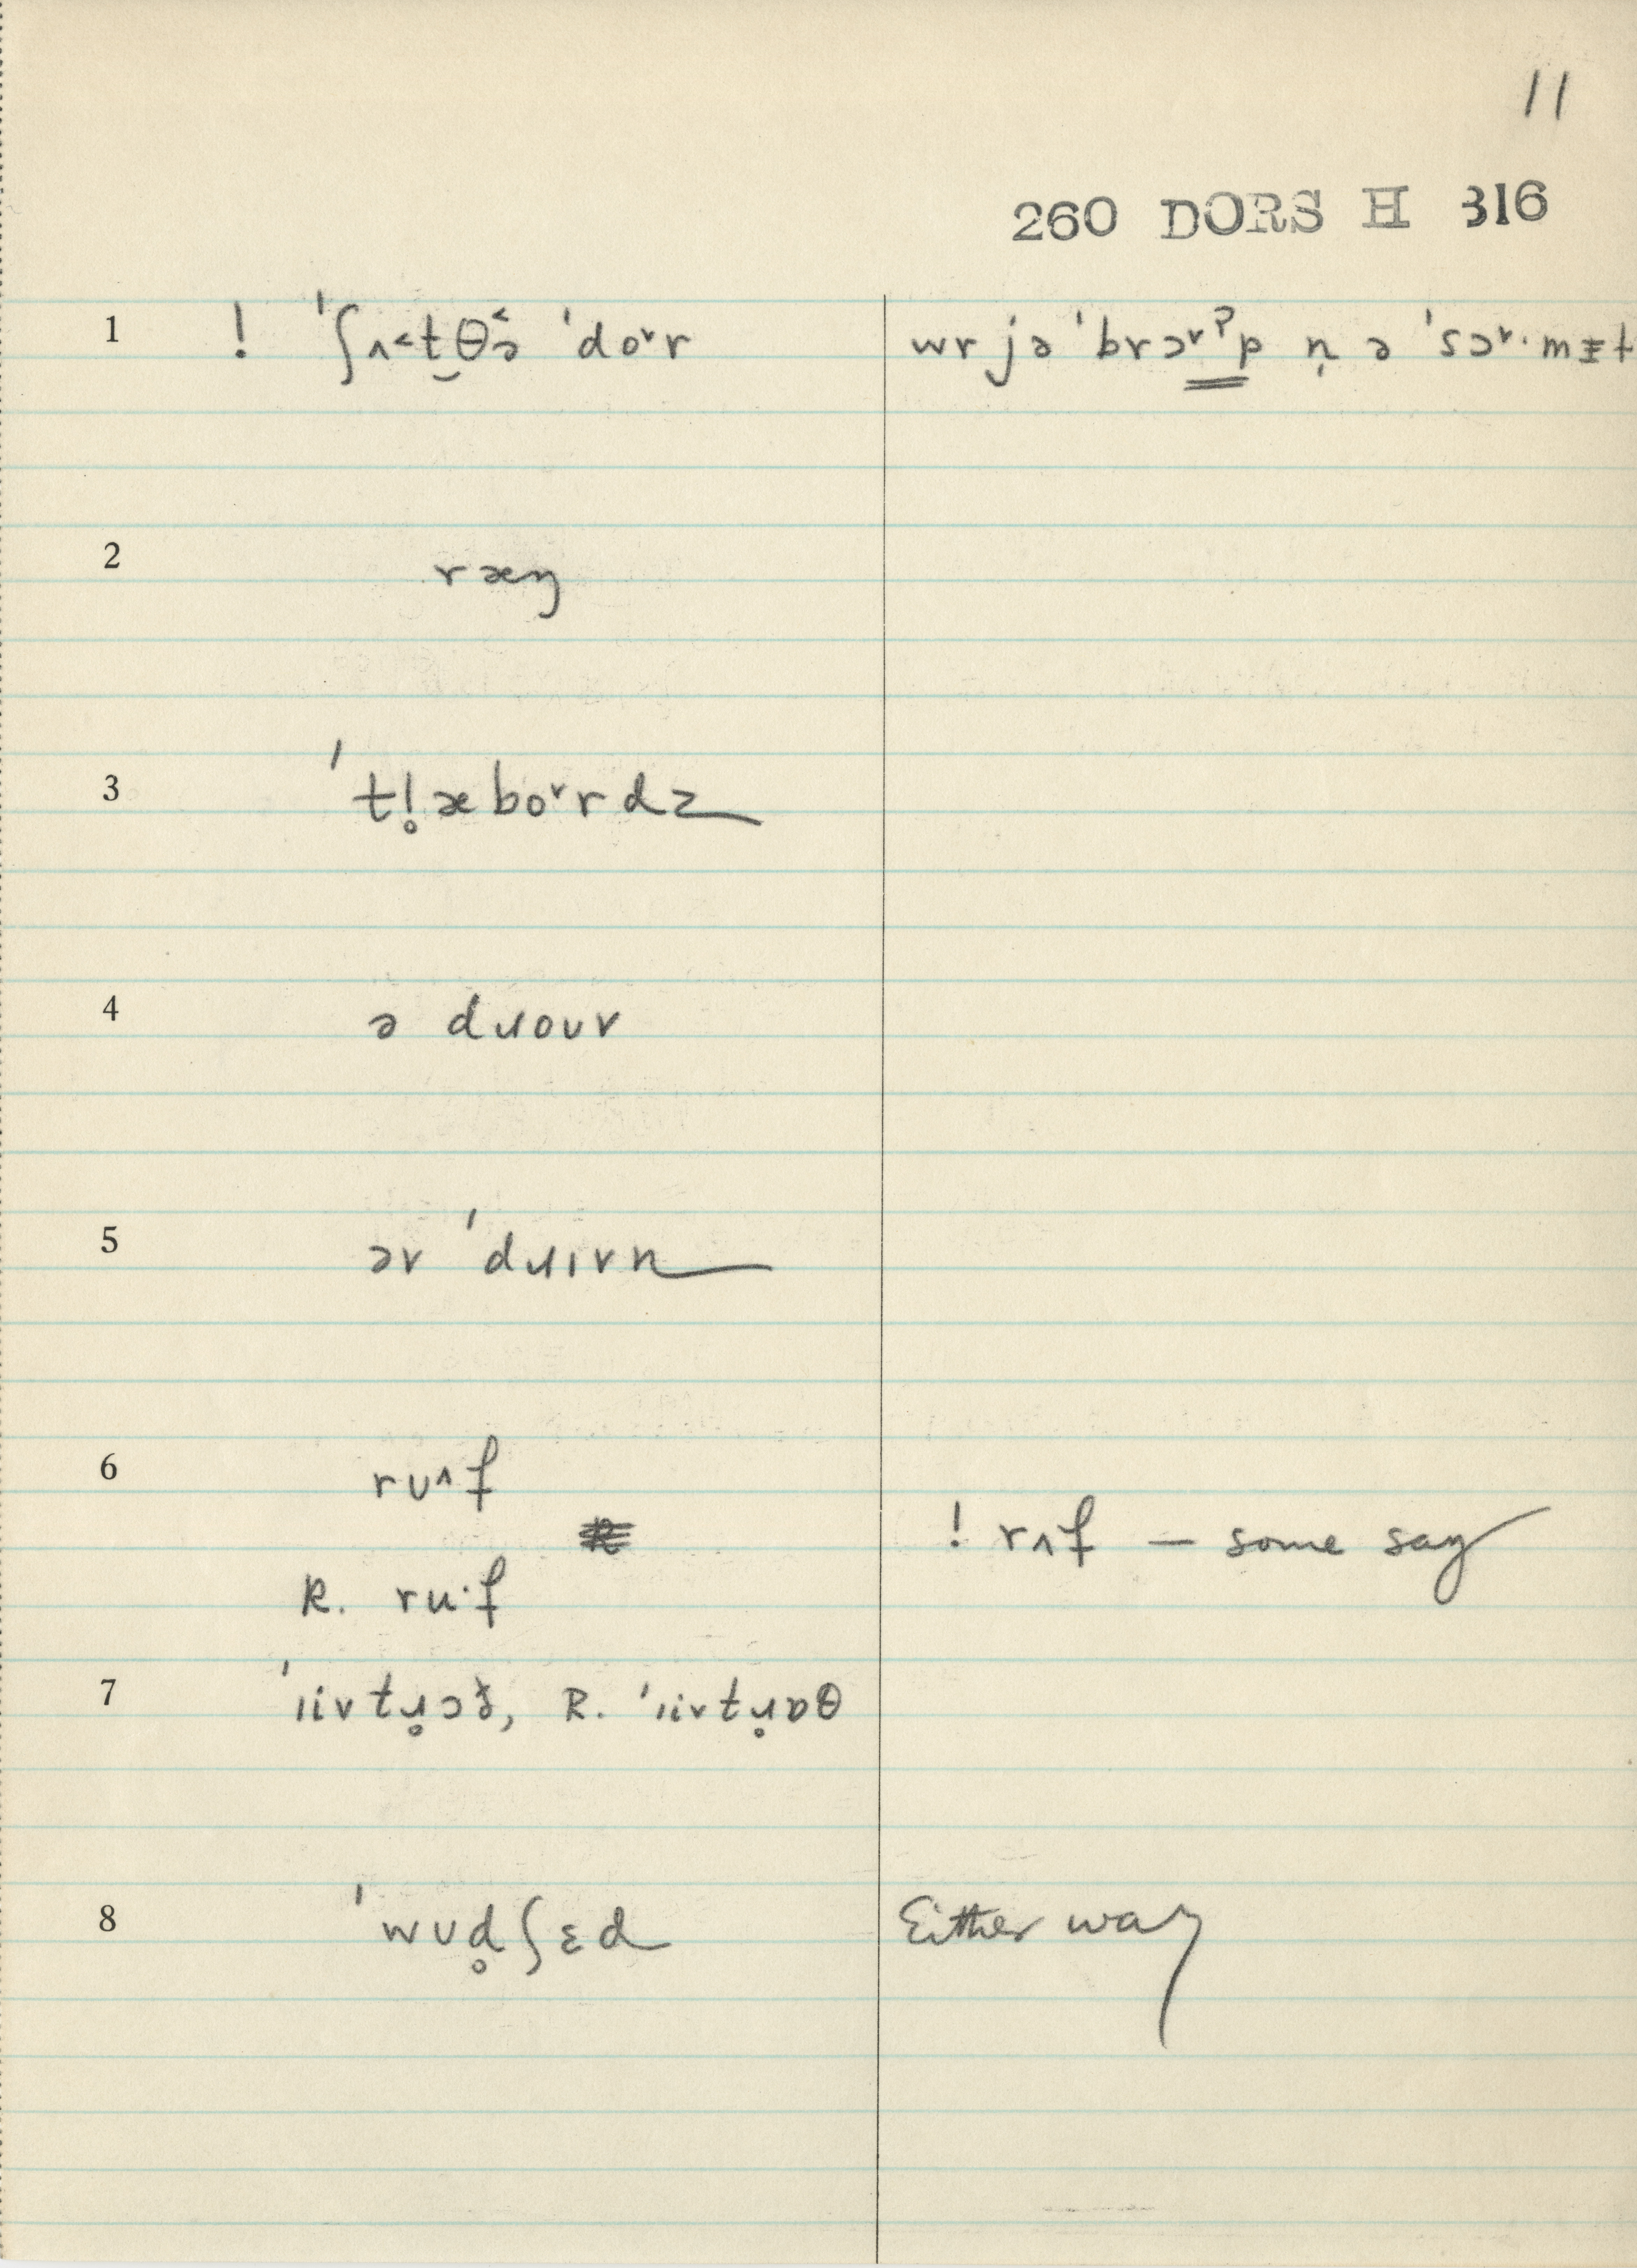 11
260 DORS H 316
1 ! ˈʃʌ˂t̮θə˂ ˈdoᵛr wr jə ˈbrɔᵛˀp n̩ ə ˈsɔᵛ·mɪ̵t
2 ræŋ
3 ˈtl̥æboᵛrdz
4 ə dɹoʊr
5 ər ˈdɹɪrn
6 rʊ^f
! rʌf — some say
R. ru·f
7 ˈɹivtɹ̥ɔð̥, R. ˈɹivtɹ̥ɒθ
8 ˈwʊd̥ʃɛd Either way